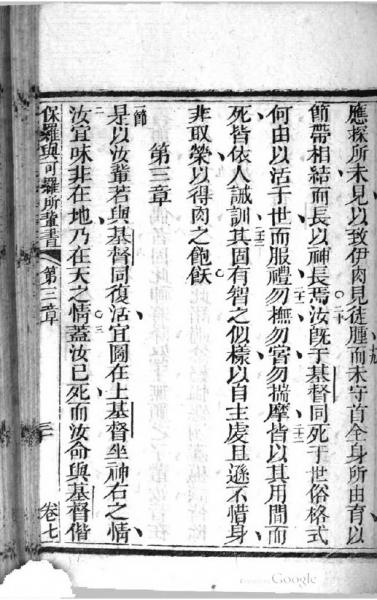 應探所未見以致伊肉見徒腫而未守首全身所由育以
節帶相結而長以神長焉汝旣于基督同死于世俗格式
何由以活于世而服禮勿撫勿嘗勿揣摩皆以其用間而
死皆依人誡訓其固有智之似樣以自主虔且遜不惜身
非取榮以得肉之飽飫
第三章
一節
是以汝輩若與基督同復活宜圖在上基督坐神右之情
二
汝宜味非在地乃在天之情蓋汝已死而汝命與基督偕
三
保羅與可羅所輩書
第三章
三
卷七
Google